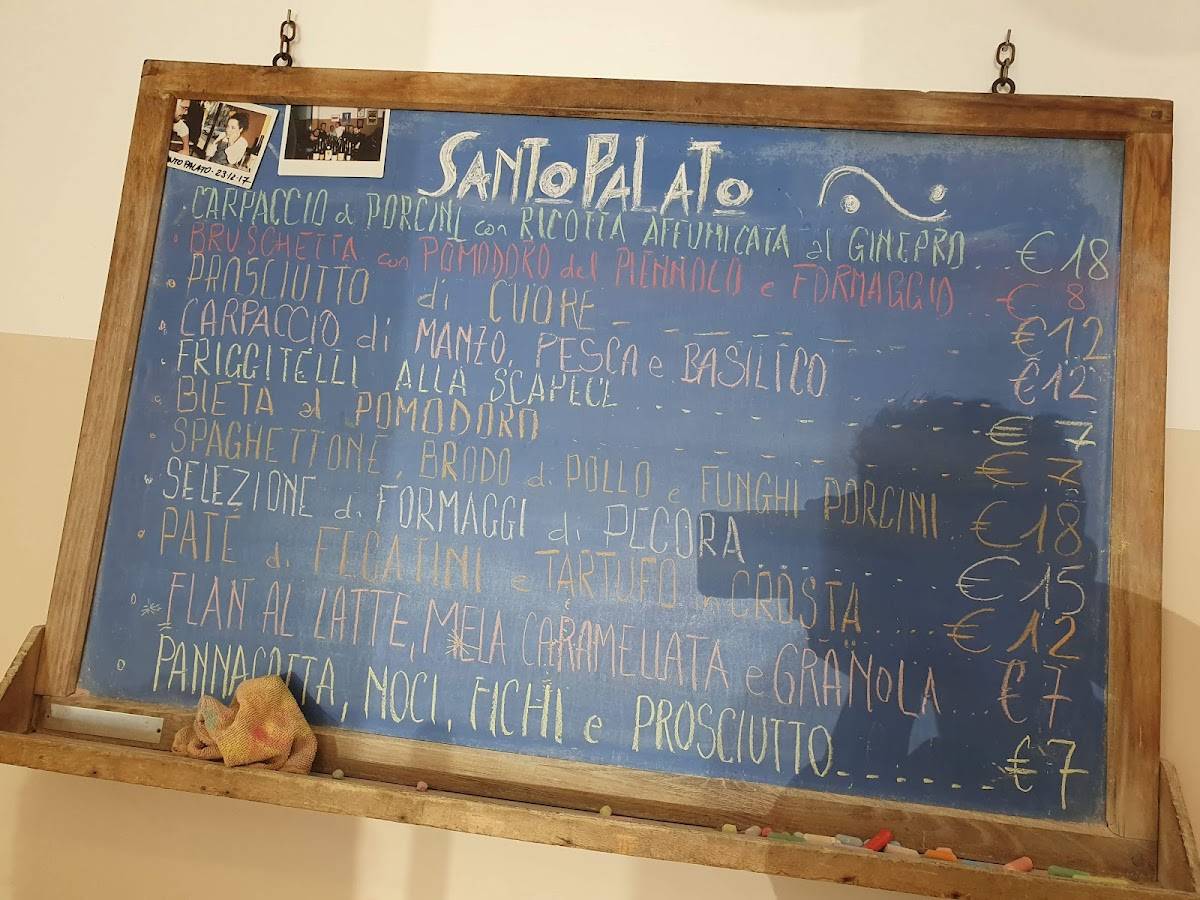 NTO PALATO - 23.12.17
SANTO PALATO
CARPACCIO di PORCINI con RICOTTA AFFUMICATA al GINEPRO € 18
BRUSCHETTA con POMODORO del PIENNOLO e FORMAGGIO € 8
PROSCIUTTO di CUORE € 12
CARPACCIO di MANZO, PESCA e BASILICO € 12
FRIGGITELLI ALLA SCAPECE € 7
BIETA al POMODORO € 7
SPAGHETTONE, BRODO di POLLO e FUNGHI PORCINI € 18
SELEZIONE di FORMAGGI di PECORA € 15
PATÉ di FEGATINI e TARTUFO in CROSTA € 12
FLAN AL LATTE, MELA CARAMELLATA e GRANOLA € 7
PANNACOTTA, NOCI, FICHI e PROSCIUTTO € 7